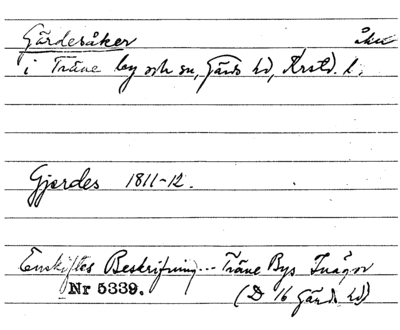 Gärdesåker åker
i Träne by och sn, Gärds hd, Krstd. l.
Gjerdes 1811-12.
Enskiftes Beskrifning... Träne Bys Inägor
Nr 5339. (D 16 Gärds hd)